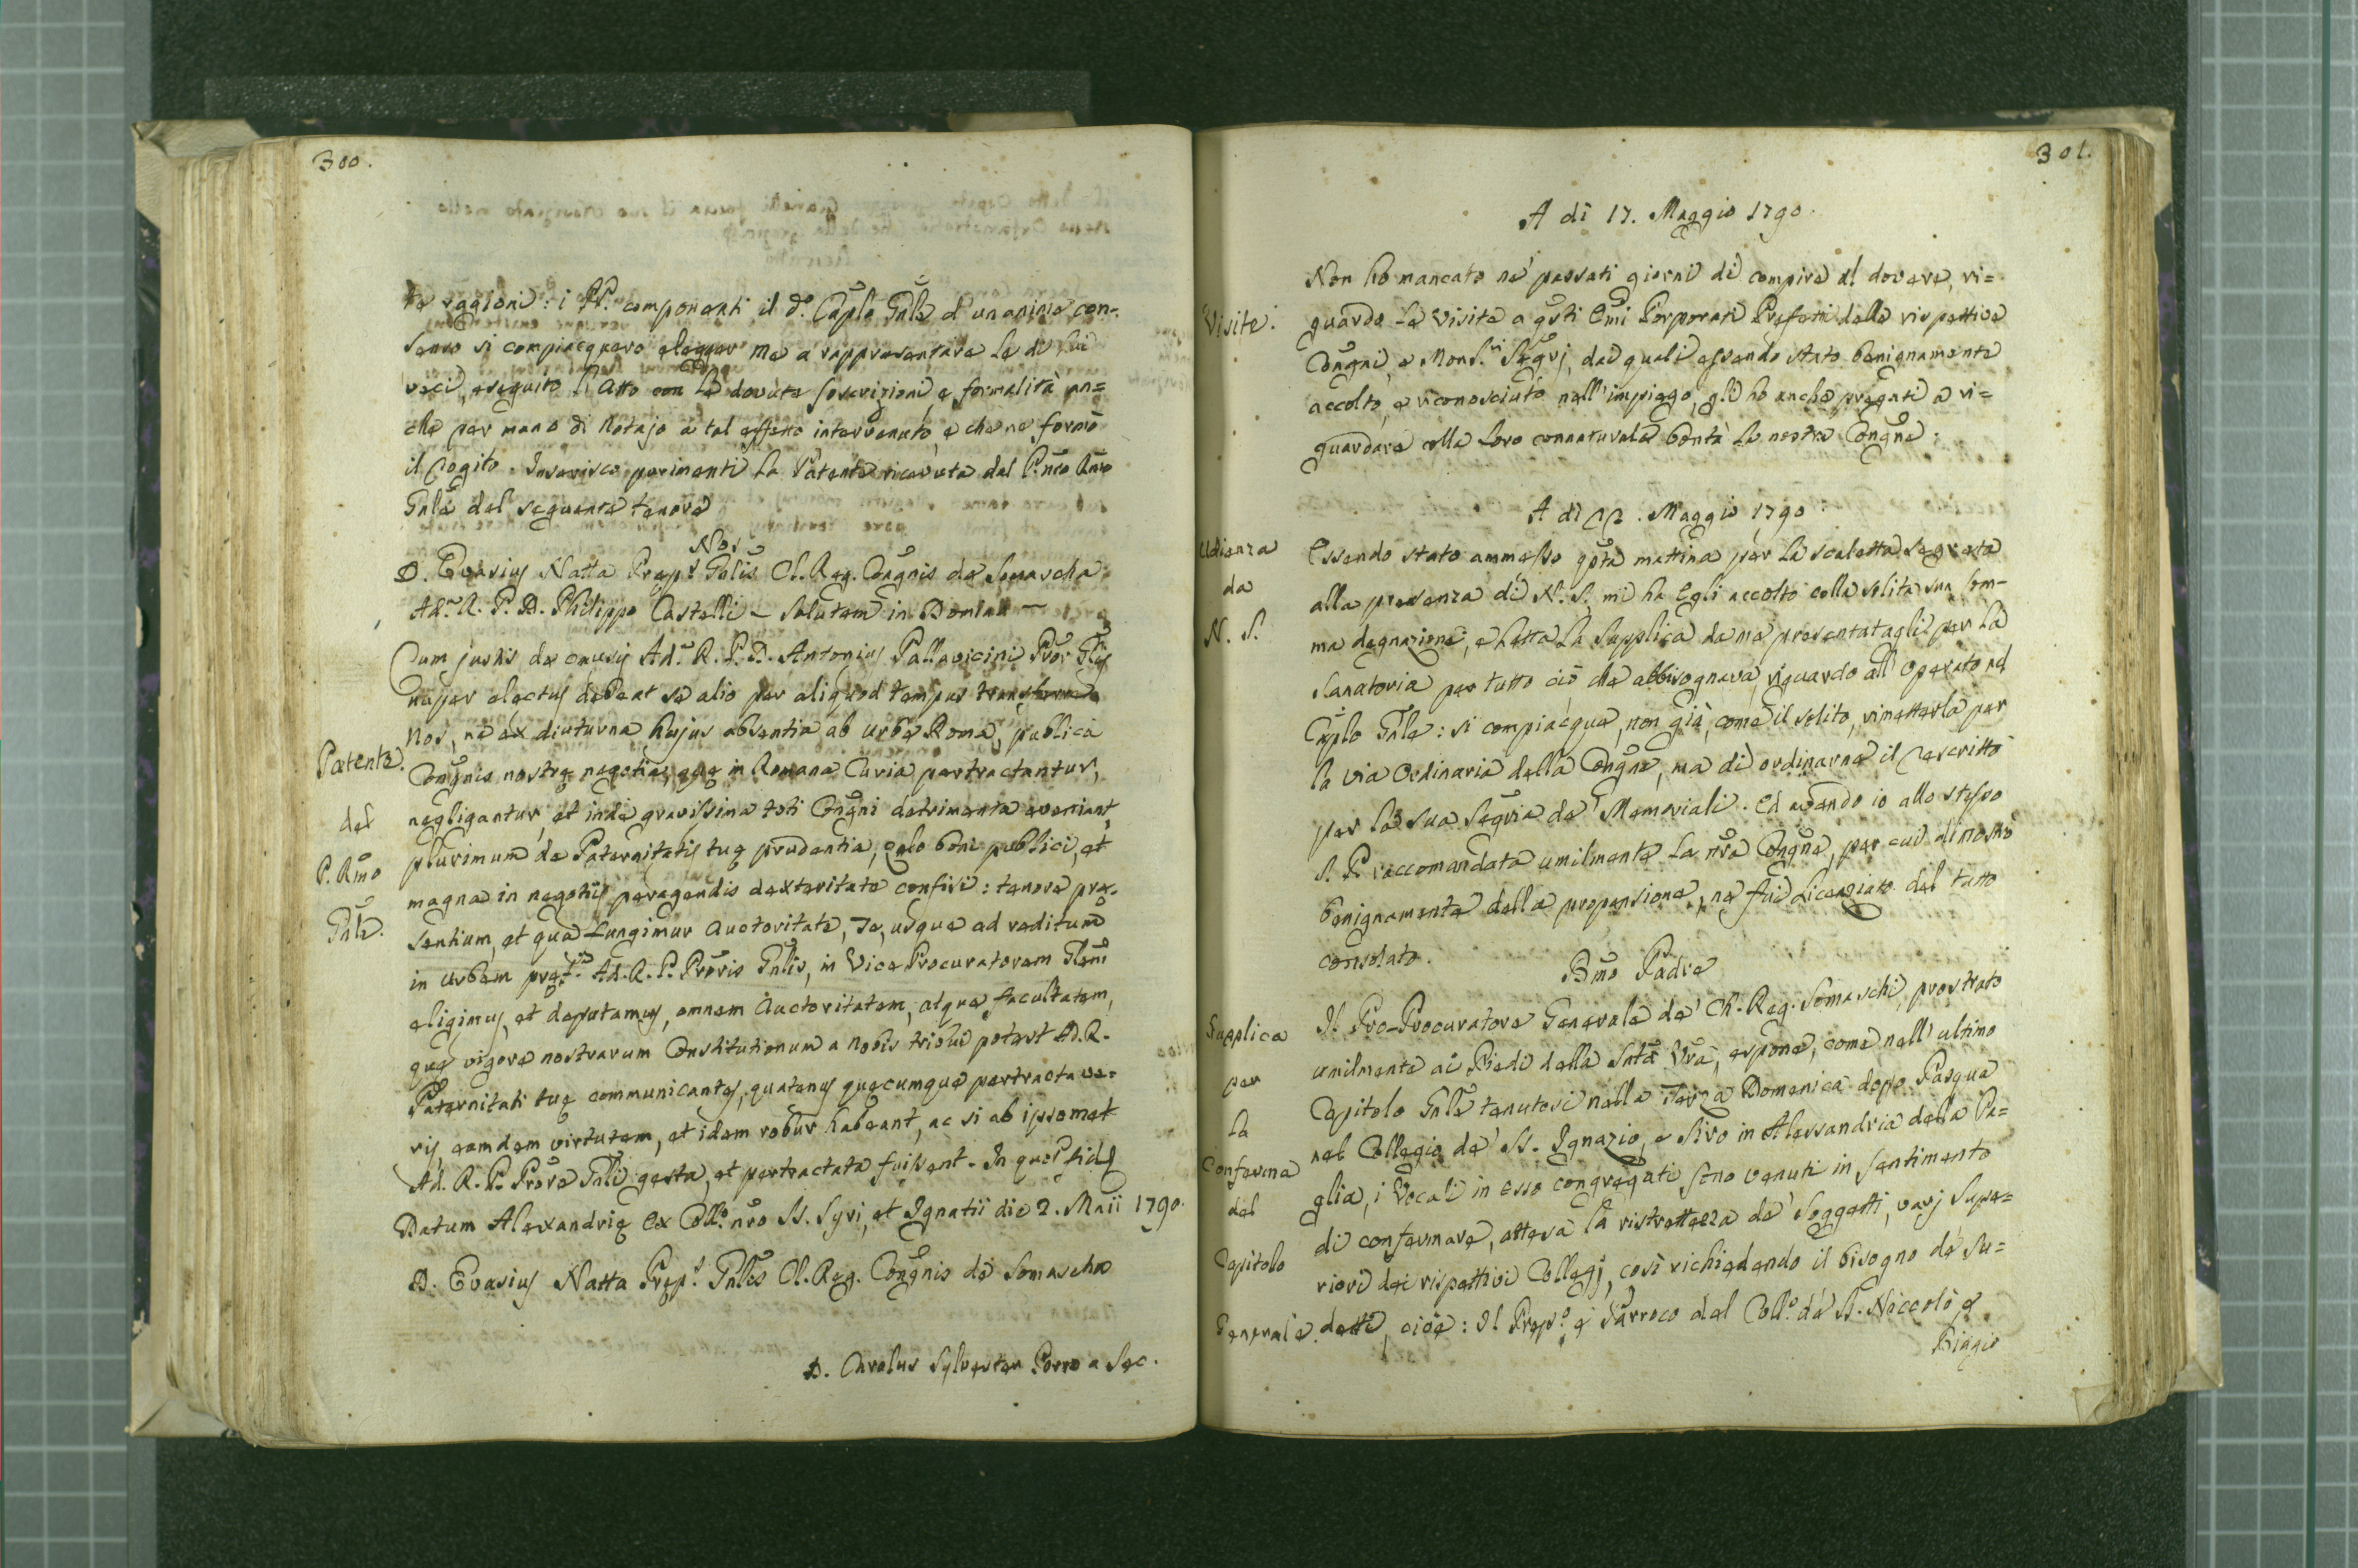 300.
te raggioni: i PP. componenti il d.o Caplo Gnle d'unanime con=
senso si compiacquero elegger me a rappresentare le di lui
veci, eseguito l'Atto con le dovute soscrizioni e formalità an=
che per mano di Notajo a tal effetto intervenuto, e che ne formò
il Rogito. Inserisco parimenti la Patente ricevuta dal P.nro Rmo
Gnle del seguente tenore
Nos
D. Evasius Natta Prep.s Gnlis Cl. Reg. Congnis de Somascha
Ad.m R. P. D. Philippo Castelli – Salutem in Dno
Cum justis de causis Ad.m R. P. D. Antonius Pallavicini Pror Glis
nuper electus debeat se alio per aliquod tempus transferre
Nos, ne ex diuturna hujus absentia ab urbe Roma, publica
Patente
Congnis nostrę negotia, quę in Romana Curia pertractantur,
negligantur, et inde gravissima toti Congni detrimenta eveniant,
del
plurimum de Paternitatis tuę prudentia, zelo boni publici, et
P. Rmo
magna in negotiis peragendis dexteritate confisi: tenore prę-
Gnle.
sentium, et qua fungimur auctoritate, Te, usque ad reditum
in urbem pręf.ti Ad. R. P. Proris Gnlis, in Vice Procuratorem Glem
eligimus, et deputamus, omnem auctoritatem, atque facultatem,
quę vigore nostrarum Constitutionum a nobis tribui potest Ad. R.
Paternitati tuę communicantes, quatenus quęcumque pertractave=
ris, eamdem virtutem, et idem robur habeant, ac si ab ipsomet
Ad. R. P. Prore Gnli gesta, et pertractata fuissent. In quor fidem
Datum Alexandrię ex Coll.o nro SS. Syri, et Ignatii die 2. Maii 1790.
D. Evasius Natta Prep.s Gnlis Cl. Reg. Congnis de Somascha
D. Carolus Sylvester Porro a Sec.
301.
A dì 17. Maggio 1790.
Non ho mancato ne' passati giorni di compire al dovere, ri=
Visite.
guardo le Visite a qsti Emi Porporati Prefetti delle rispettive
Congni, e Mons.ri Segrj, dai quali essendo stato benignamente
accolto, e riconosciuto nell'impiego, gli ho anche pregati a ri=
guardare colla loro connaturale bontà la nostra Congne.
A dì 22. Maggio 1790
Udienza
Essendo stato ammesso qsta mattina per la scaletta segreta
da
alla presenza di N. S. mi ha Egli accolto colla solita sua som-
N. S.
ma degnazione, e letta la Supplica da me presentatagli per la
Sanatoria per tutto ciò che abbisognava riguardo all'operato nel
Caplo Gnle: si compiacque, non già, come il solito, rimetterla per
la via Ordinaria della Congne, ma di ordinarne il Rescritto
per la sua Segria de' Memoriali. Ed avendo io allo stesso
S. P. raccomandata umilmente la nra Congne, per cui dimostrò
benignamente della propensione, ne fui licenziato del tutto
consolato.
Bmo Padre
Supplica
Il Pro-Procuratore Generale de' Ch. Reg. Somaschi, prostrato
umilmente ai Piedi della Sntà Vra, espone, come nell'ultimo
per
Capitolo Gnle tenutosi nella Terza Domenica dopo Pasqua
la
nel Collegio de' SS. Ignazio, e Siro in Alessandria della Pa=
Conferma
glia, i Vocali in esso congregati sono venuti in sentimento
del
di confermare, attesa la ristrettezza de' Soggetti, varj Supe=
Capitolo
riori dei rispettivi Collegj, così richiedendo il bisogno de' Su=
Generale.
detti, cioè: Il Prep.o e Parroco del Coll.o de' SS. Niccolò e
Biagio